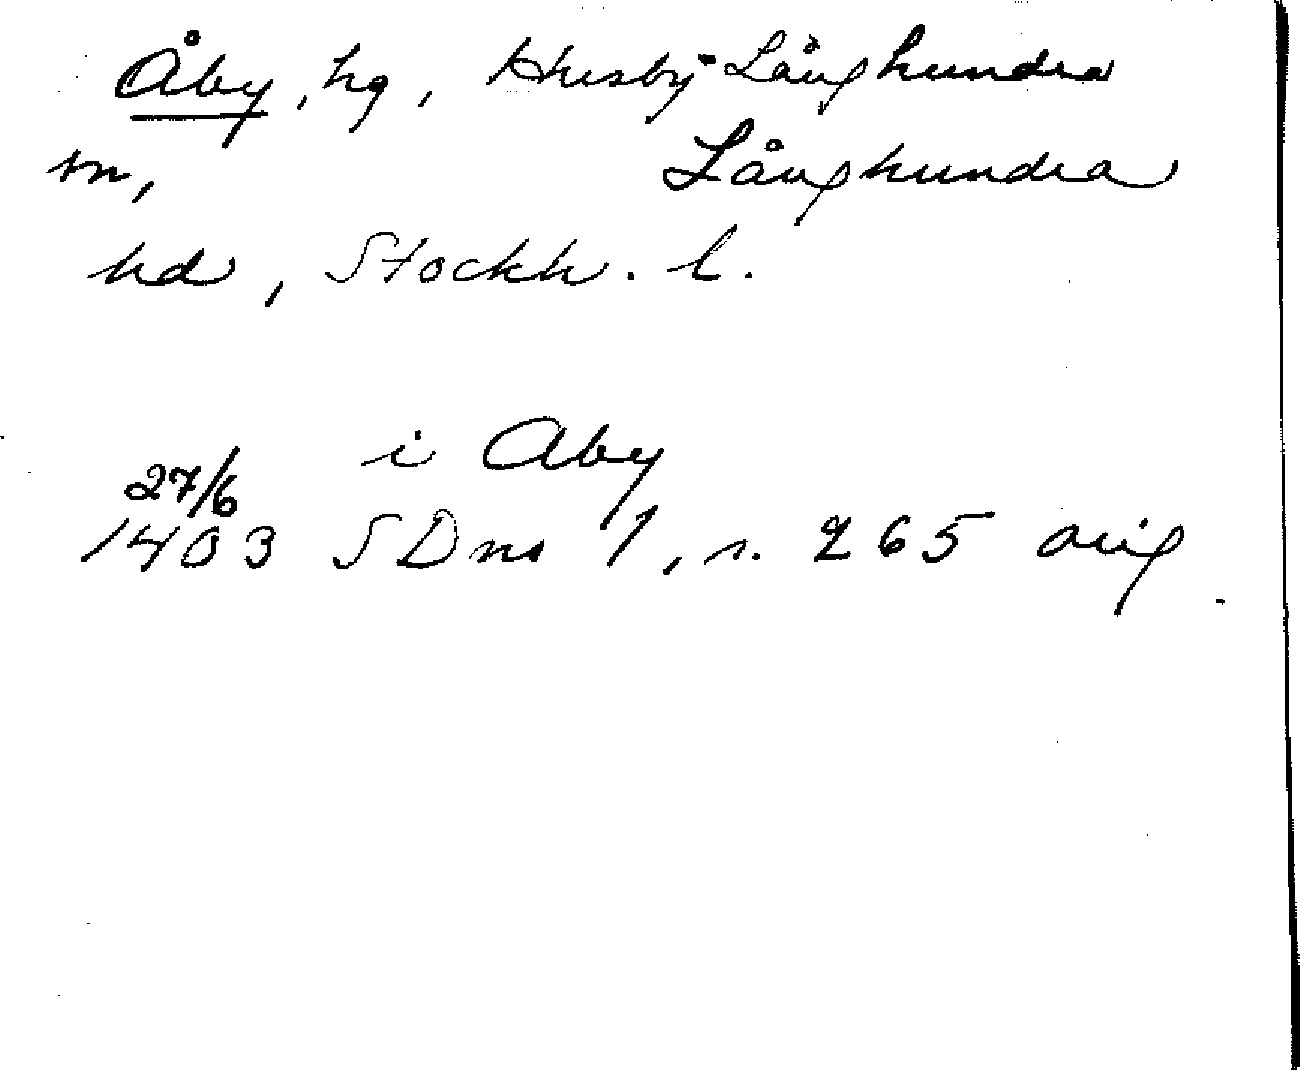 Åby, hg, Husby-Långhundra
sn, Långhundra
hd, Stockh. l.
i Aby
27/6
1403 SDns 1, s. 265 orig